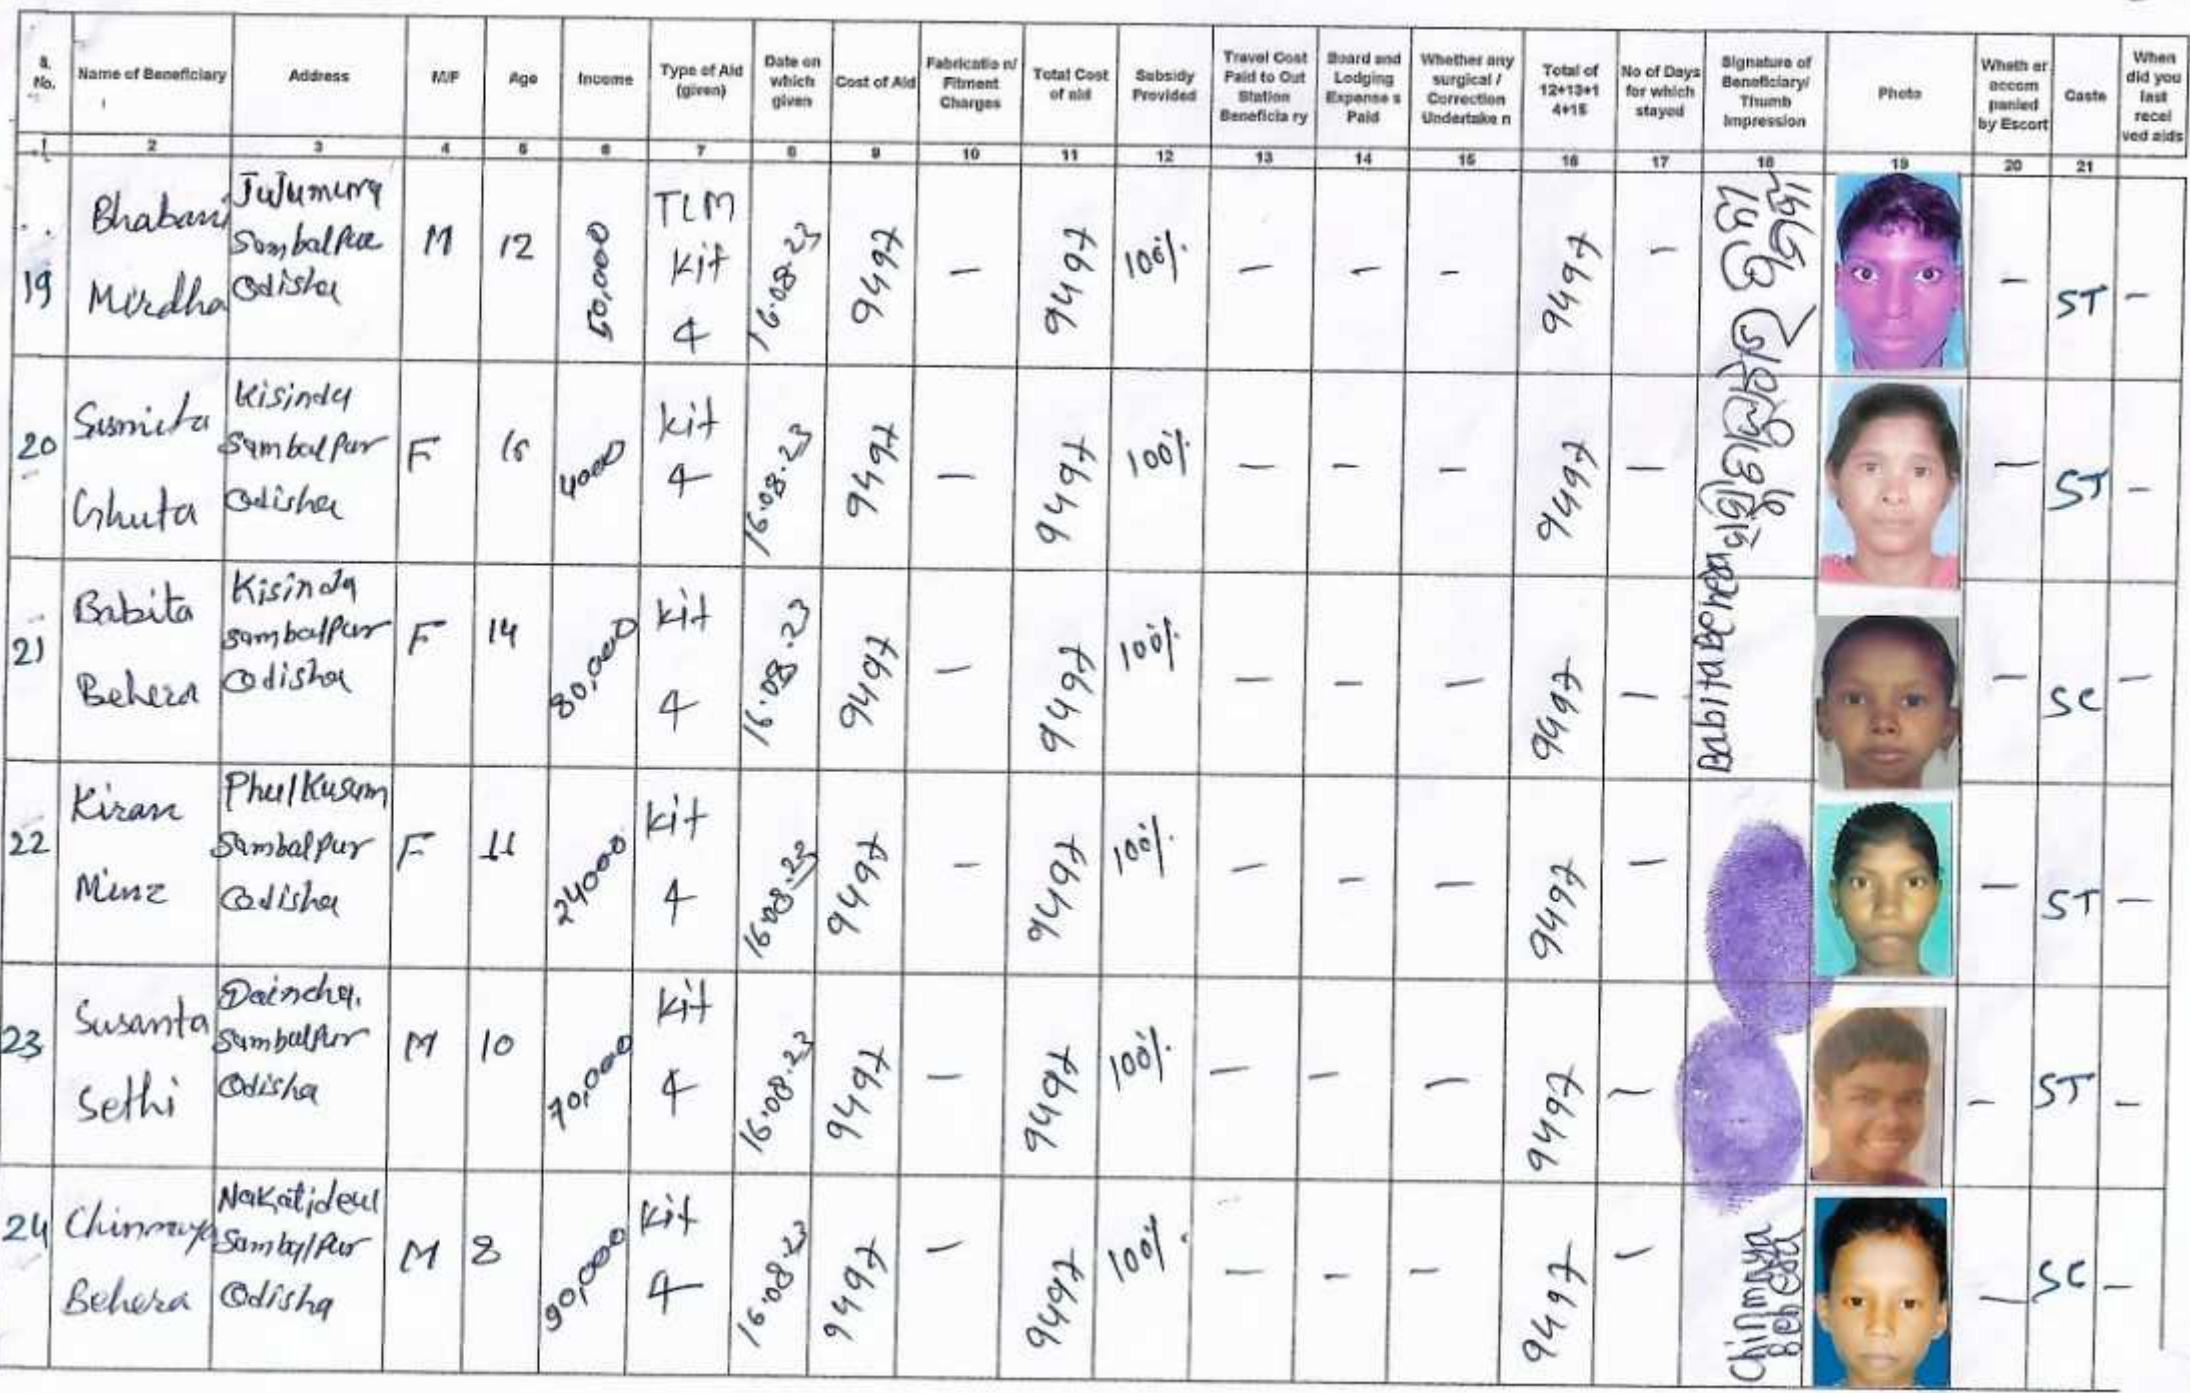 S. No.
Name of Beneficiary
Address
M/F
Age
Income
Type of Aid (given)
Date on which given
Cost of Aid
Fabricatio n/ Fitment Charges
Total Cost of aid
Subsidy Provided
Travel Cost Paid to Out Station Beneficia ry
Board and Lodging Expense s Paid
Whether any surgical / Correction Undertake n
Total of 12+13+1 4+15
No of Days for which stayed
Signature of Beneficiary/ Thumb Impression
Photo
Wheth er accom panied by Escort
Caste
When did you last recei ved aids
1 2 3 4 5 6 7 8 9 10 11 12 13 14 15 16 17 18 19 20 21
19 Bhabani Mirdha
Jujumura Sambalpur Odisha
M 12 50,000 TLM Kit 4 16.08.23 9497 - 9497 100% - - - 9497 - - ST -
20 Susmita Ghuta
Kisinda Sambalpur Odisha
F 4000 Kit 4 16.08.23 9497 - 9497 100% - - - 9497 - - ST -
21 Babita Behera
Kisinda Sambalpur Odisha
F 14 80,000 Kit 4 16.08.23 9497 - 9497 100% - - - 9497 - Babita Behera - SC -
22 Kiran Minz
Phulkusum Sambalpur Odisha
F 11 24000 Kit 4 16.08.23 9497 - 9497 100% - - - 9497 - - ST -
23 Susanta Sethi
Daincha. Sambalpur Odisha
M 10 70,000 Kit 4 16.08.23 9497 - 9497 100% - - - 9497 - - ST -
24 Chinmaya Behera
Nakatideul Sambalpur Odisha
M 8 90,000 Kit 4 16.08.23 9497 - 9497 100% - - - 9497 - Chinmaya Behera - SC -